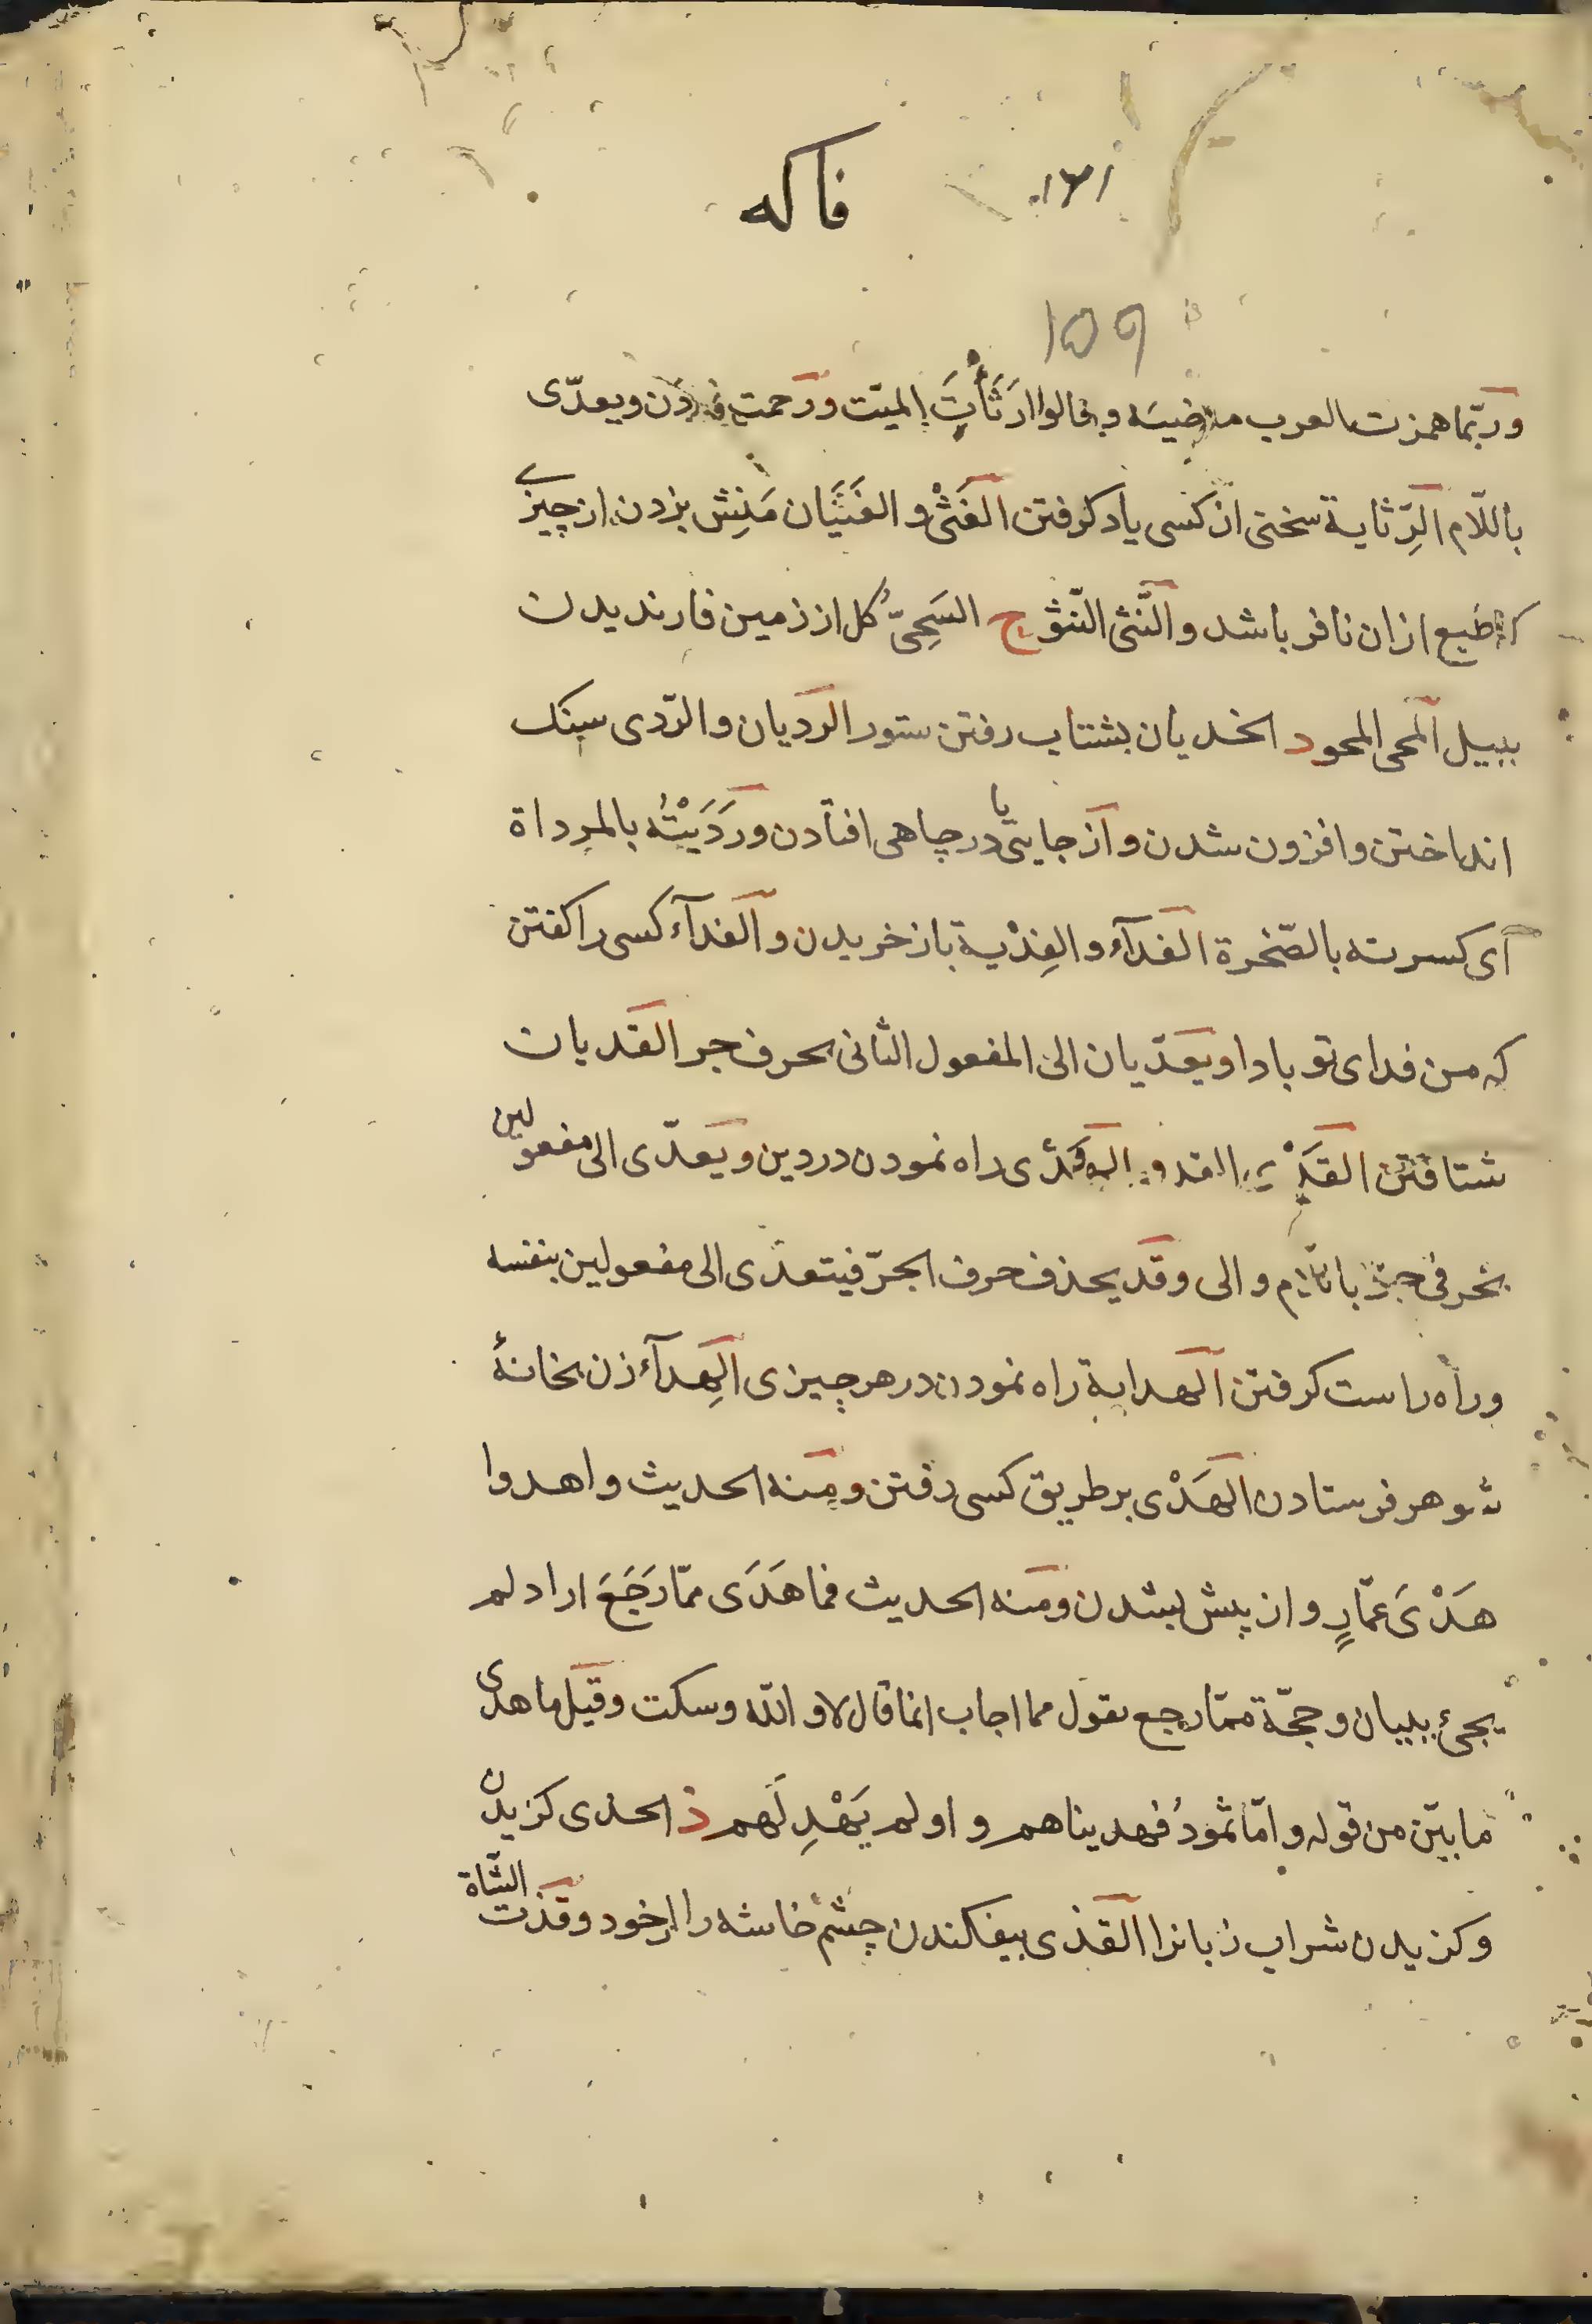 فاكه
۱۵۹
وربّما همزت العرب ماضيه وقالوا رَثَأْتُ الميّت ورحمت كردن ويعدّى
باللّام الرِّثاية سخنى از كسى ياد كرفتن الغَثْى والغَثَيان مَنِش بزدن از چيزى
كه طبع ازان نافر باشد والنّثى النّثو ج السَحِىّ كل از زمين فارنديدن
ببيل المحى المحو د الخديان بشتاب رفتن ستور الرديان والرّدى سنك
انداختن وافزون شدن واز جايى يا در چاهى افتادن ورَدَيْتُه بالمرداة
اى كسرته بالصّخرة الفدآء والفِدْية باز خريدن والفدآء كسى را كفتن
كه من فداى تو بادا ويعدّيان الى المفعول الثانى بحرف جر القديان
شتافتن القَدْى القدو الهُدى راه نمودن در دين ويعدّى الى مفعولين
بحرفى جرّ باللّام والى وقد يحذف حرف الجرّ فيتعدّى الى مفعولين بنفسه
وراه راست كرفتن الهداية راه نمودن در هر چيزى الهِدآء زن بخانهٔ
شوهر فرستادن الهَدْى بر طريق كسى رفتن ومنه الحديث واهدوا
هَدْىَ عمّارٍ و از پيش بشدن ومنه الحديث فما هَدَى ممّا رَجَعَ اراد لم
يجئ ببيان وحجّة ممّا رجع يقول مما اجاب انما قال لا والله وسكت وقيل ما هدى
ما بيّن من قوله وامّا ثمودُ فهديناهم و اولم يَهْدِ لَهم ذ الحذى كزيدن
وكزيدن شراب زبانرا القذى بيفكندن چشم خاشه را از خود وقذت الشّاة